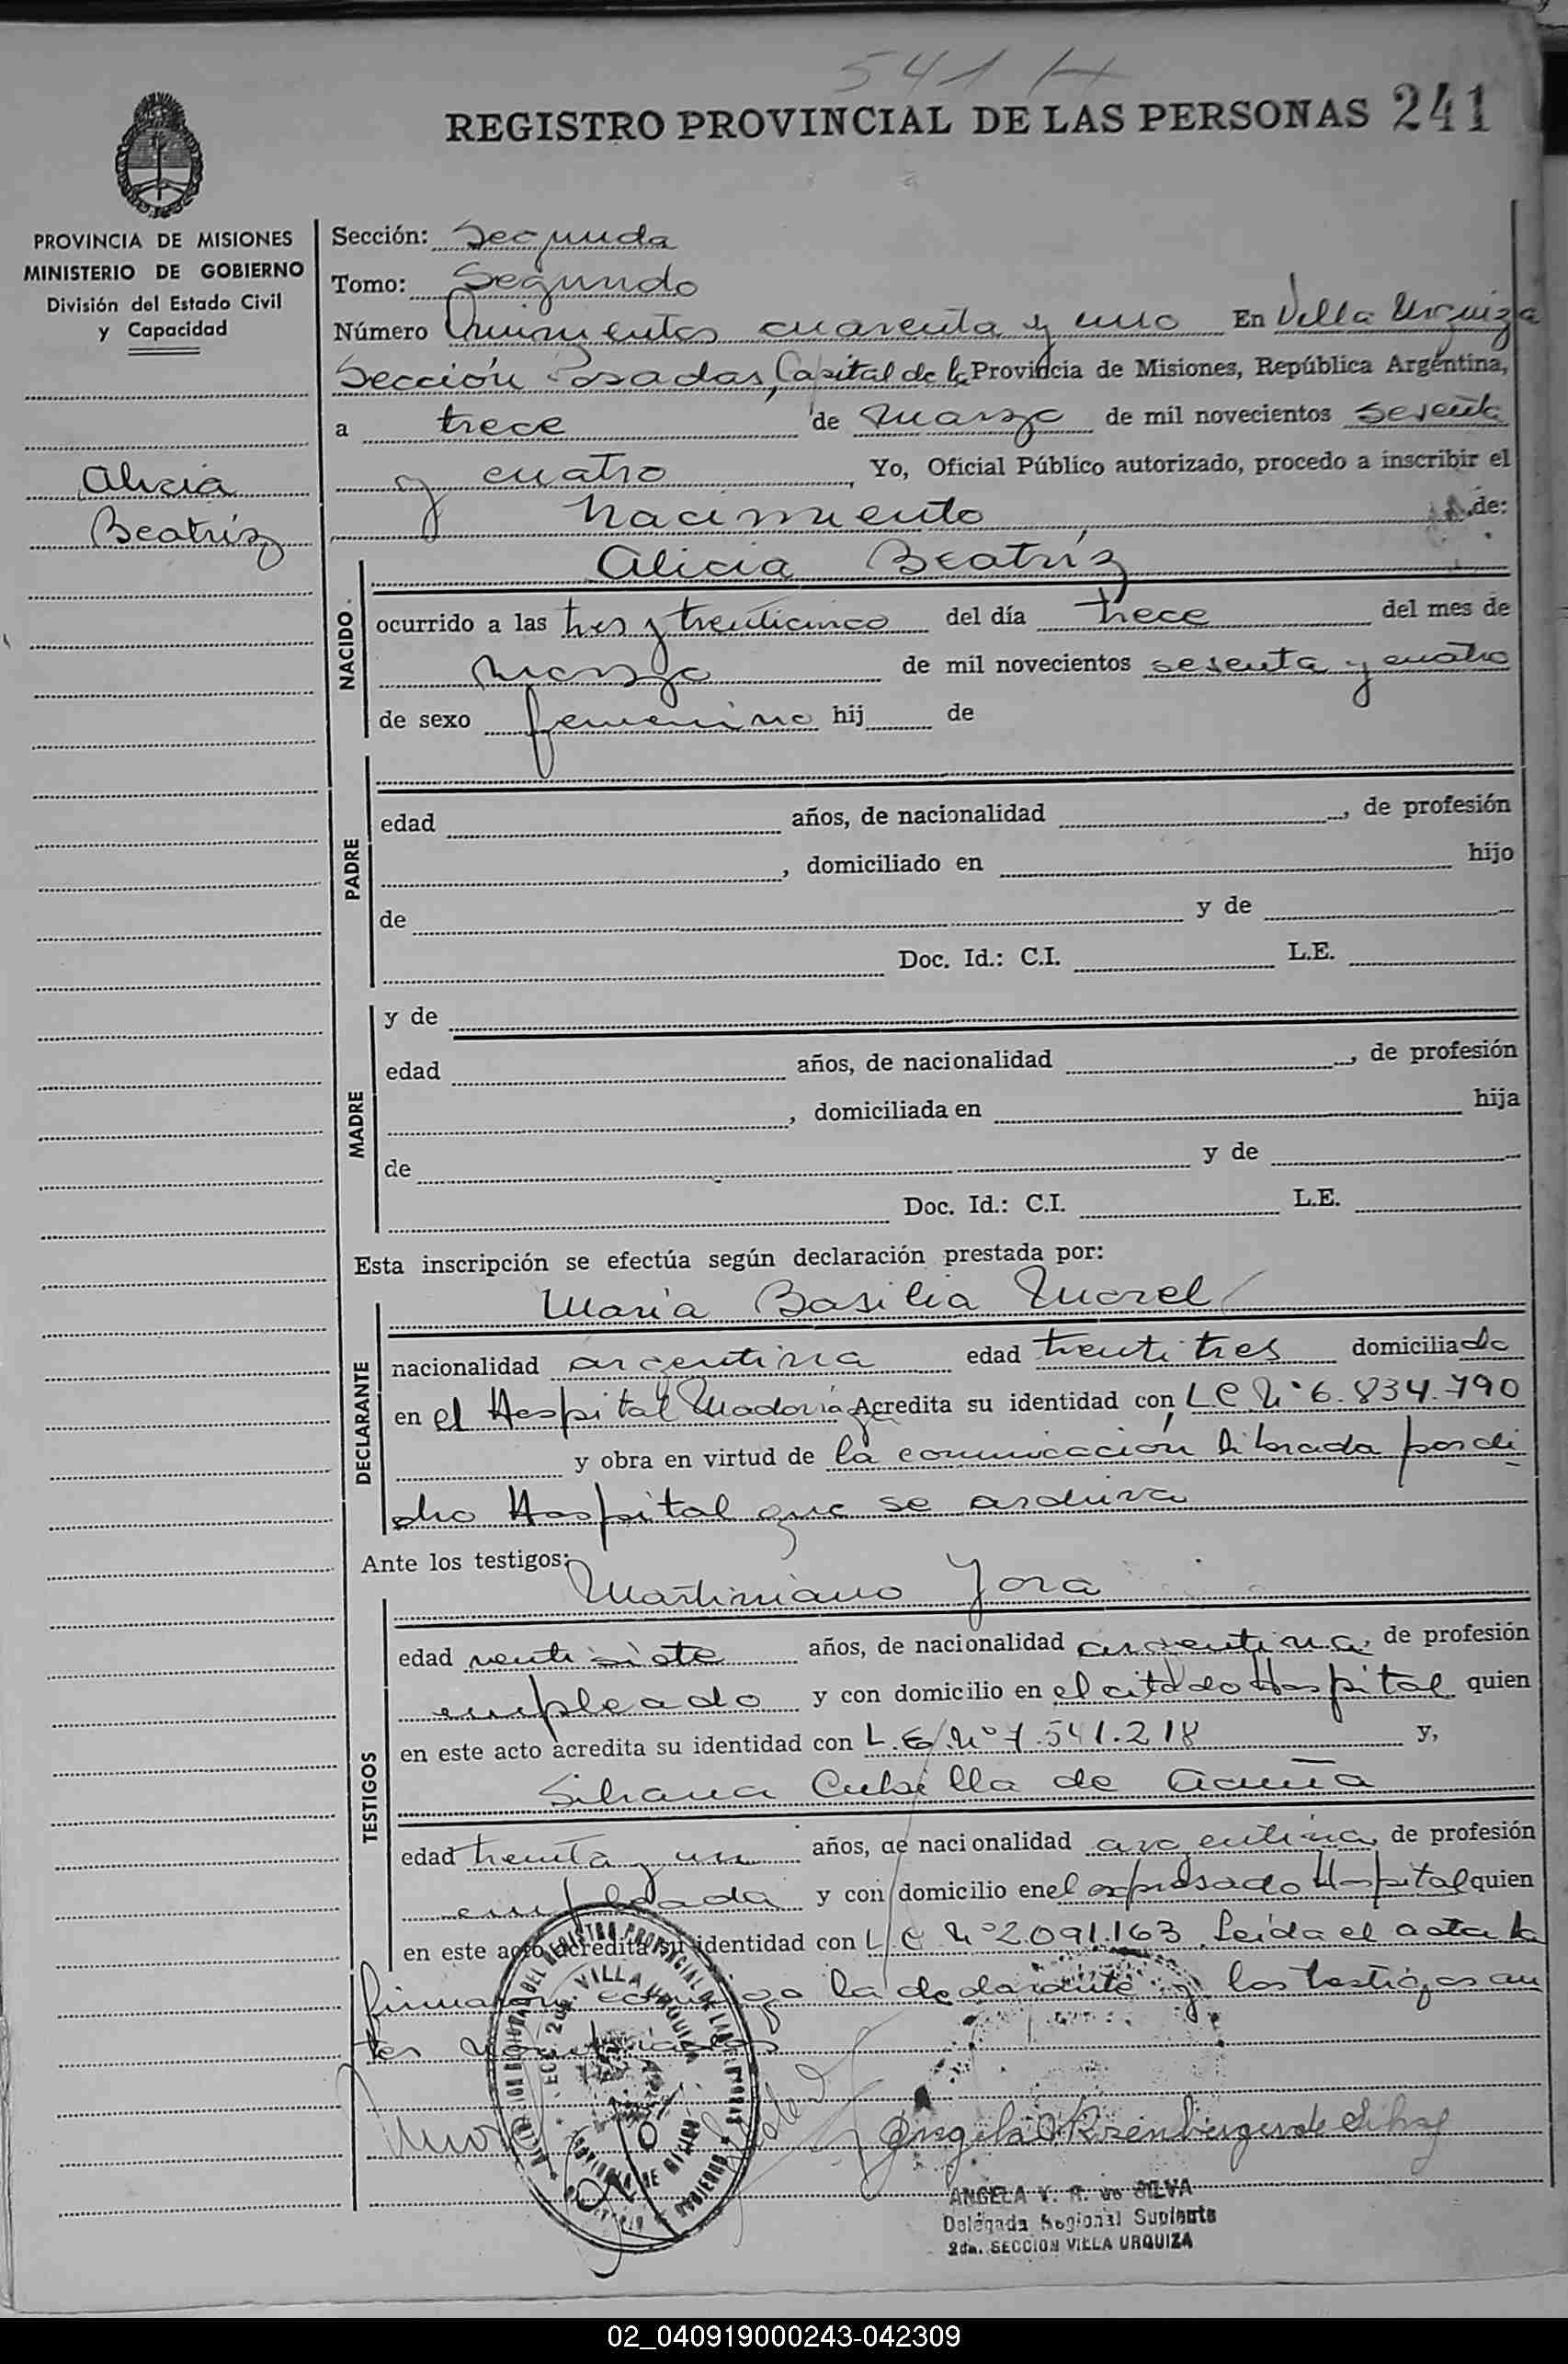 541 H
REGISTRO PROVINCIAL DE LAS PERSONAS 241
PROVINCIA DE MISIONES
MINISTERIO DE GOBIERNO
División del Estado Civil
y Capacidad
Alicia
Beatríz
Sección: Segunda
Tomo: Segundo
Número Quinientos cuarenta y uno En Villa Urquiza
Sección Posadas, Capital de la Provincia de Misiones, República Argentina,
a trece de marzo de mil novecientos sesenta
y cuatro, Yo, Oficial Público autorizado, procedo a inscribir el
nacimiento de:
NACIDO
Alicia Beatríz
ocurrido a las tres y treinticinco del día trece del mes de
marzo de mil novecientos sesenta y cuatro
de sexo femenino hij de
PADRE
edad años, de nacionalidad , de profesión
, domiciliado en hijo
de y de
Doc. Id.: C.I. L.E.
MADRE
y de
edad años, de nacionalidad , de profesión
, domiciliada en hija
de y de
Doc. Id.: C.I. L.E.
Esta inscripción se efectúa según declaración prestada por:
DECLARANTE
María Basilia Morel
nacionalidad argentina edad trentitres domiciliada
en el Hospital Madariaga Acredita su identidad con L C Nº 6.834.790
y obra en virtud de la comunicación librada por di
cho Hospital que se archiva
Ante los testigos:
TESTIGOS
Martiniano Jora
edad ventisiete años, de nacionalidad argentina, de profesión
empleado y con domicilio en el citado Hospital quien
en este acto acredita su identidad con L.E. Nº 7.541.218 y,
Silvana Cubilla de Acuña
edad trenta y un años, de nacionalidad argentina, de profesión
empleada y con domicilio en el expresado Hospital quien
en este acto acredita su identidad con L C Nº 2.091.163 Leída el acta la
firmaron conmigo la declarante y los testigos an
tes nombrados
Morel
ANGELA V. R. de SILVA
Delegada Regional Suplente
2da. SECCION VILLA URQUIZA
02_040919000243-042309